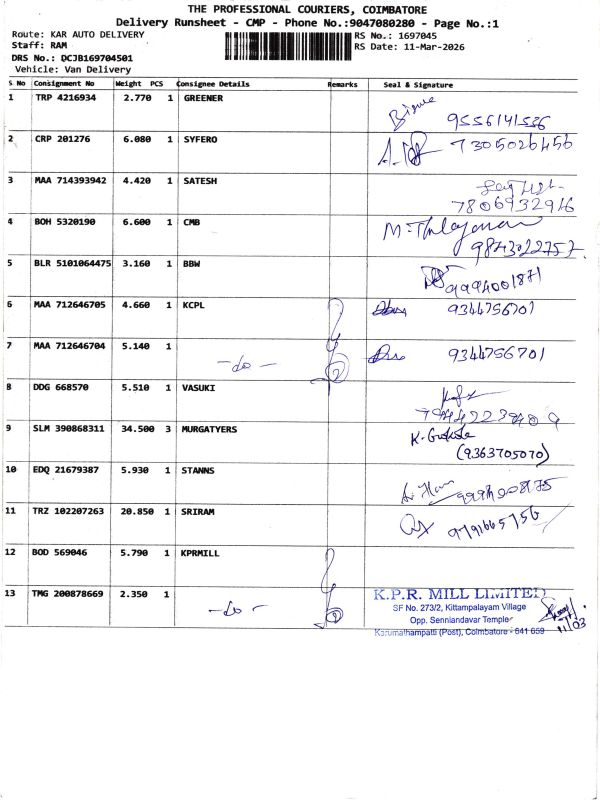 THE PROFESSIONAL COURIERS, COIMBATORE
Delivery Runsheet - CMP - Phone No.:9047080280 - Page No.:1
Route: KAR AUTO DELIVERY RS No.: 1697045
Staff: RAM RS Date: 11-Mar-2026
DRS No.: DCJB169704501
Vehicle: Van Delivery
S No Consignment No Weight PCS Consignee Details Remarks Seal & Signature
1 TRP 4216934 2.770 1 GREENER
9556141536
2 CRP 201276 6.080 1 SYFERO 7305026456
3 MAA 714393942 4.420 1 SATESH
7806932916
4 BOH 5320190 6.600 1 CMB
9843022757
5 BLR 5101064475 3.160 1 BBW
9994001871
6 MAA 712646705 4.660 1 KCPL 9344756701
7 MAA 712646704 5.140 1 -do- 9344756701
8 DDG 668570 5.510 1 VASUKI
9 SLM 390868311 34.500 3 MURGATYERS
(9363705070)
10 EDQ 21679387 5.930 1 STANNS
11 TRZ 102207263 20.850 1 SRIRAM 9791665756
12 BOD 569046 5.790 1 KPRMILL
13 TMG 200878669 2.350 1 -do-
K.P.R. MILL LIMITED
SF No. 273/2, Kittampalayam Village
Opp. Senniandavar Temple
Karumathampatti (Post), Coimbatore - 641 659
11/03